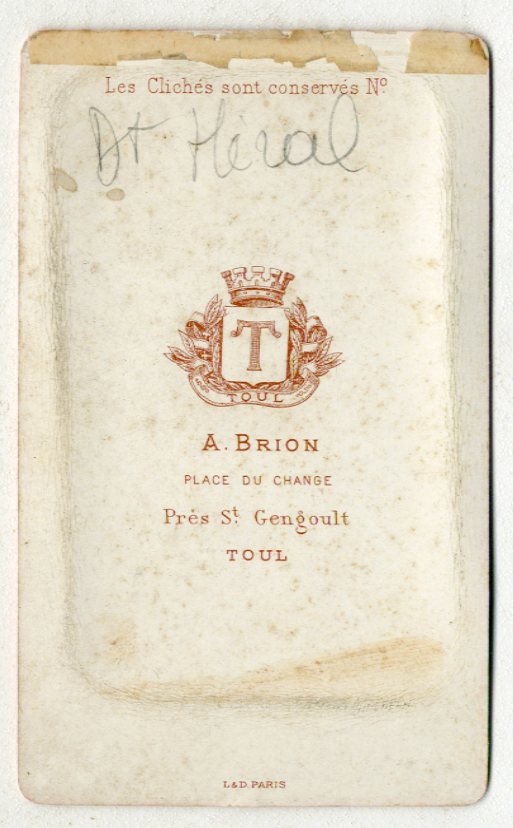 Les Clichés sont conservés Nº
Dr Héral
T
TOUL
A. BRION
PLACE DU CHANGE
Prés St. Gengoult
TOUL
L & D. PARIS